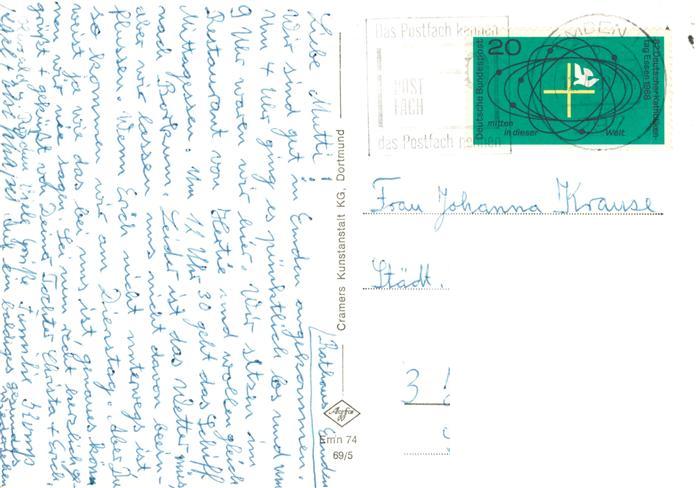 Liebe Mutti!
Wir sind gut in Emden angekommen.
Um 4 Uhr ging es pünktlich los und um
9 Uhr waren wir hier. Wir sitzen im
Restaurant von Hertie und wollen gleich
Mittagessen. Um 12 Uhr 30 geht das Schiff
nach Borkum. Leider ist das Wetter mies
aber wir lassen uns nicht davon beein-
flussen. Wenn Erich nicht unterwegs ist
so kommen wir am Dienstag. Aber Du
weist ja wie das bei uns ist genaues können
wir nie sagen. Sei nun recht herzlich ge-
grüßt geküßt von Deiner Tochter Christa + Erich
(Rathaus Emden
Cramers Kunstanstalt KG, Dortmund
Agfa
Em'n 74
69/5
Das Postfach kennen
POST
FACH
das Postfach nennen
EMDEN
20
Deutsche Bundespost
82. Deutscher Katholiken-
tag Essen 1968
mitten
in dieser
Welt
Frau Johanna Krause
Städt.
3